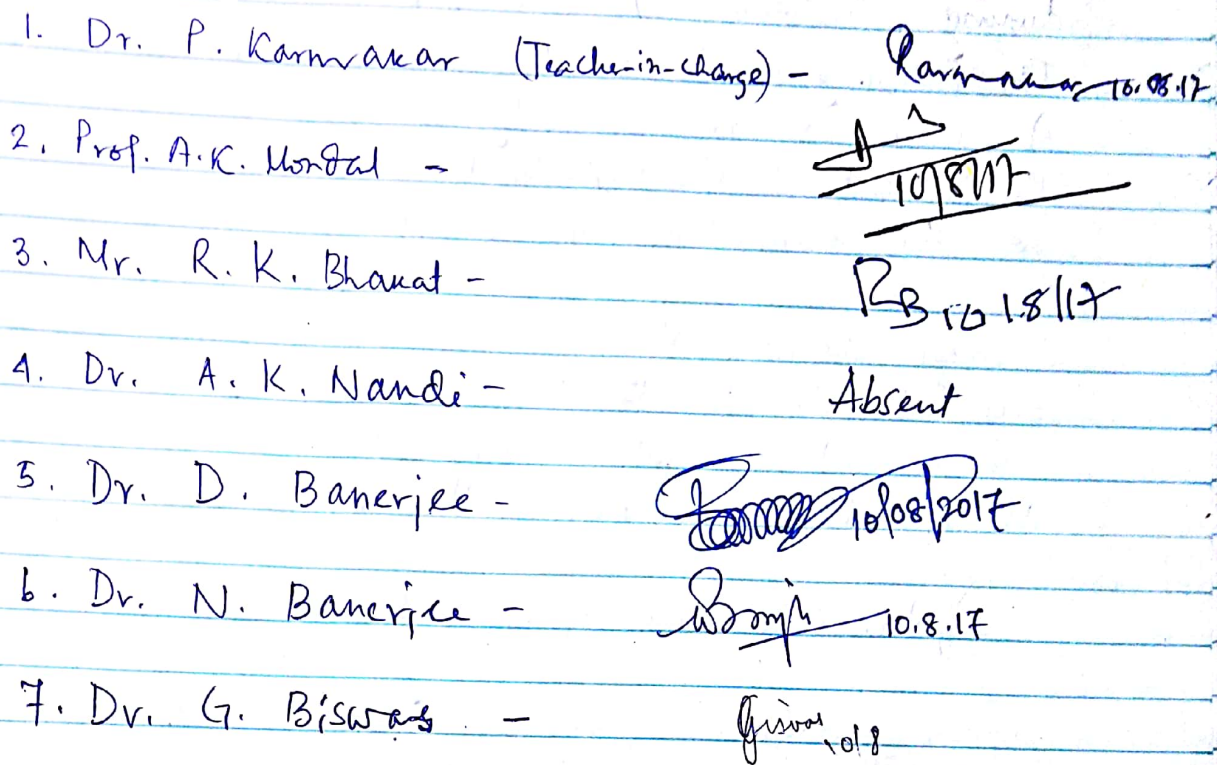 1. Dr. P. Karmakar (Teacher-in-charge) - Karmakar 10.08.17
2. Prof. A.K. Mondal - 10/8/17
3. Mr. R.K. Bhakat - RB 10/8/17
4. Dr. A.K. Nandi - Absent
5. Dr. D. Banerjee - 10/08/2017
6. Dr. N. Banerjee - 10.8.17
7. Dr. G. Biswas - 10/8